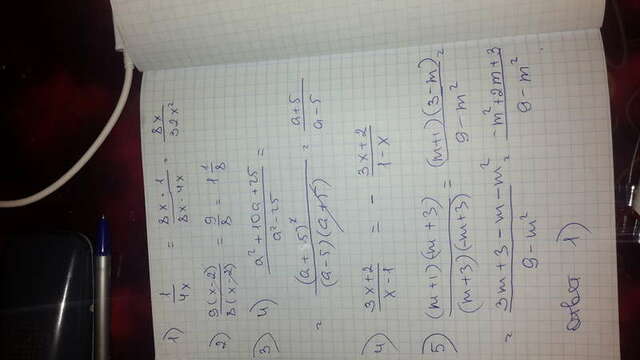 1) 1/4x = 8x · 1/8x · 4x = 8x/32x²
2) 9(x-2)/8(x-2) = 9/8 = 1 1/8
3) 4)
a²+10a+25/a²-25 =
= (a+5)²/(a-5)(a+5) = a+5/a-5
4) 3x+2/x-1 = - 3x+2/1-x
5) (m+1)(-m+3)/(m+3)(-m+3) = (m+1)(3-m)/9-m² =
= 3m+3-m-m²/9-m² = -m²+2m+3/9-m²
Ответ 1)